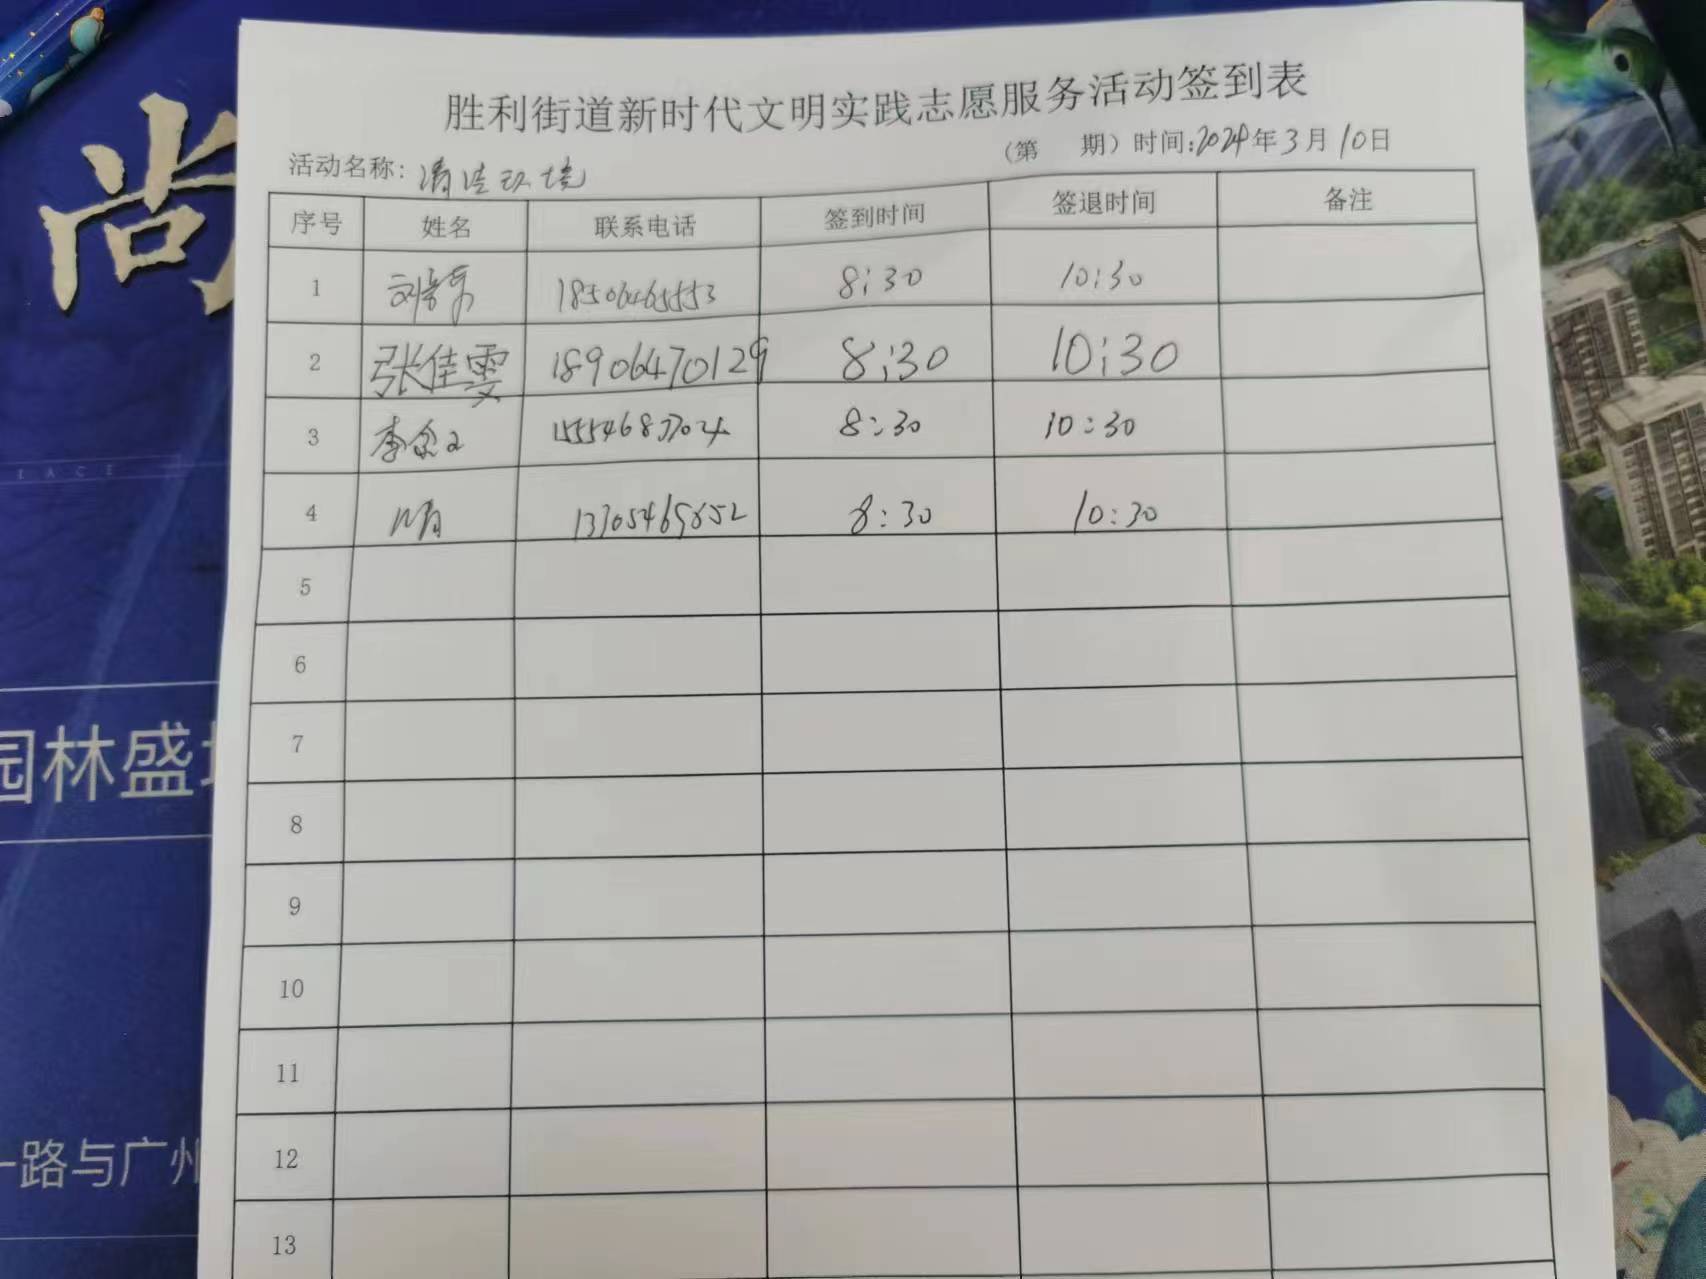 胜利街道新时代文明实践志愿服务活动签到表
(第 期) 时间:2024年3月10日
活动名称: 清洁环境
序号 姓名 联系电话 签到时间 签退时间 备注
1 18506465553 8:30 10:30
2 张佳雯 18906470129 8:30 10:30
3 李 8:30 10:30
4 8:30 10:30
5
6
7
8
9
10
11
12
13
尚
PLACE
园林盛
一路与广州